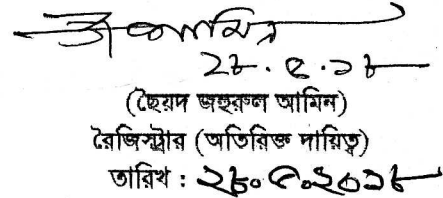 ২৮.৫.১৮
(ছৈয়দ জহুরুল আমিন)
রেজিস্ট্রার (অতিরিক্ত দায়িত্ব)
তারিখ : ২৮.৫.২০১৮